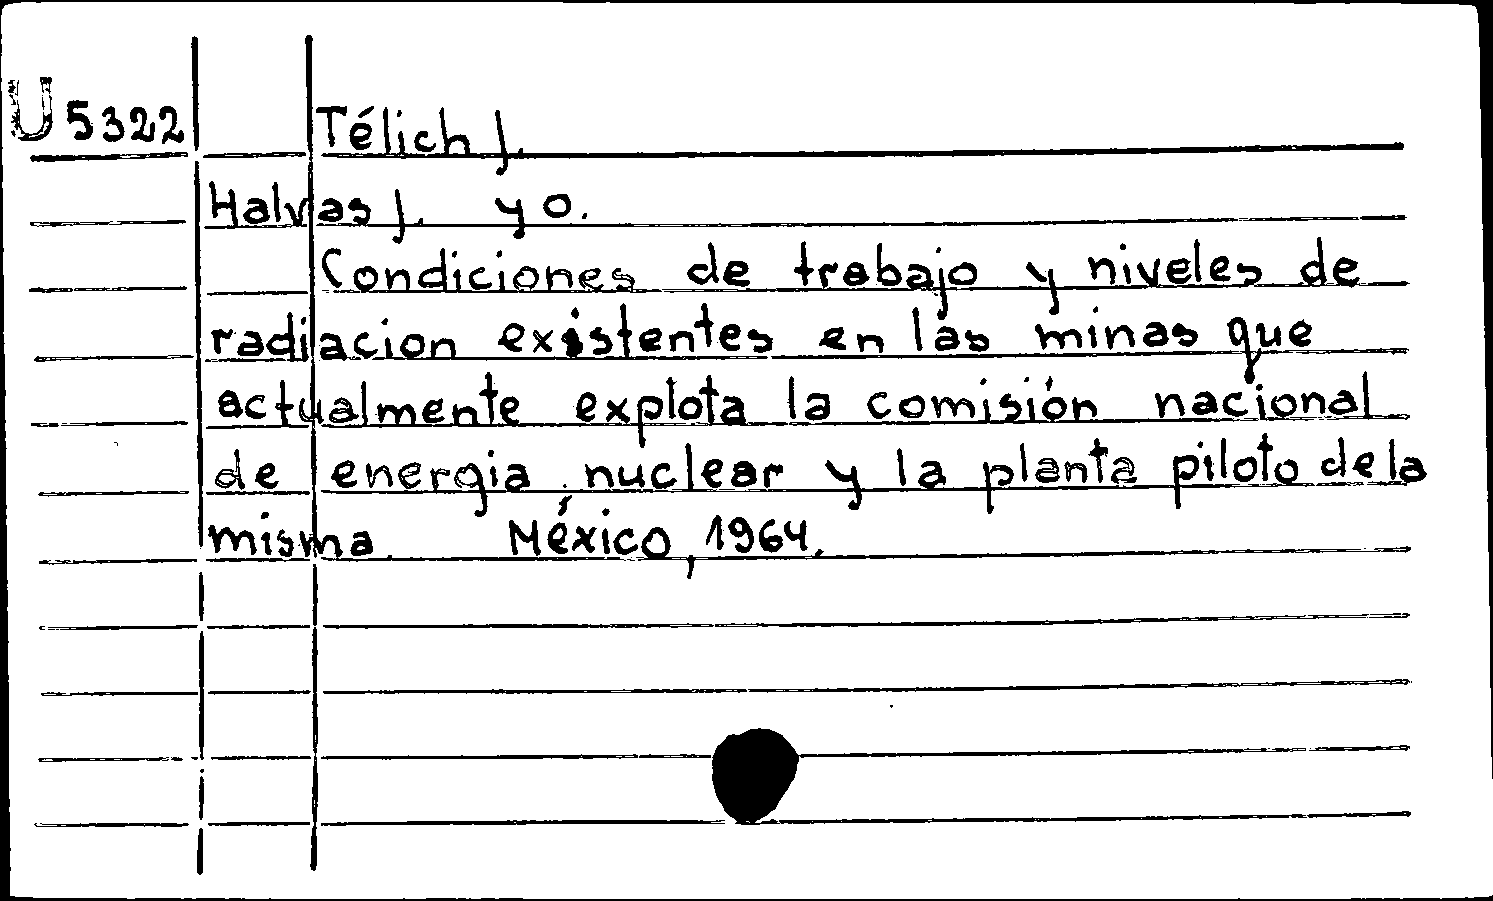 U 5322 Télich J.
Halvas J. y o.
Condiciones de trabajo y niveles de
radiacion existentes en las minas que
actualmente explota la comisión nacional
de energia nuclear y la planta piloto de la
misma. México, 1964.